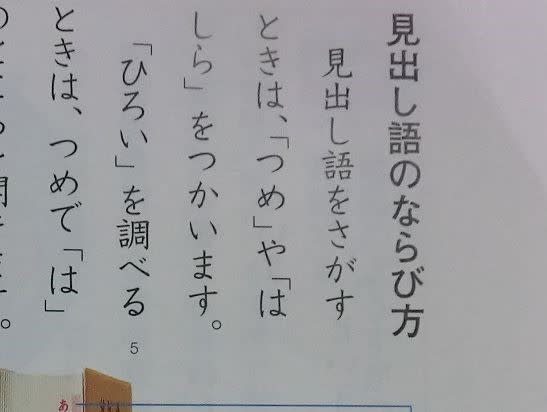 見出し語のならび方
見出し語をさがす
ときは、「つめ」や「は
しら」をつかいます。
「ひろい」を調べる
ときは、つめで「は」
5
あ